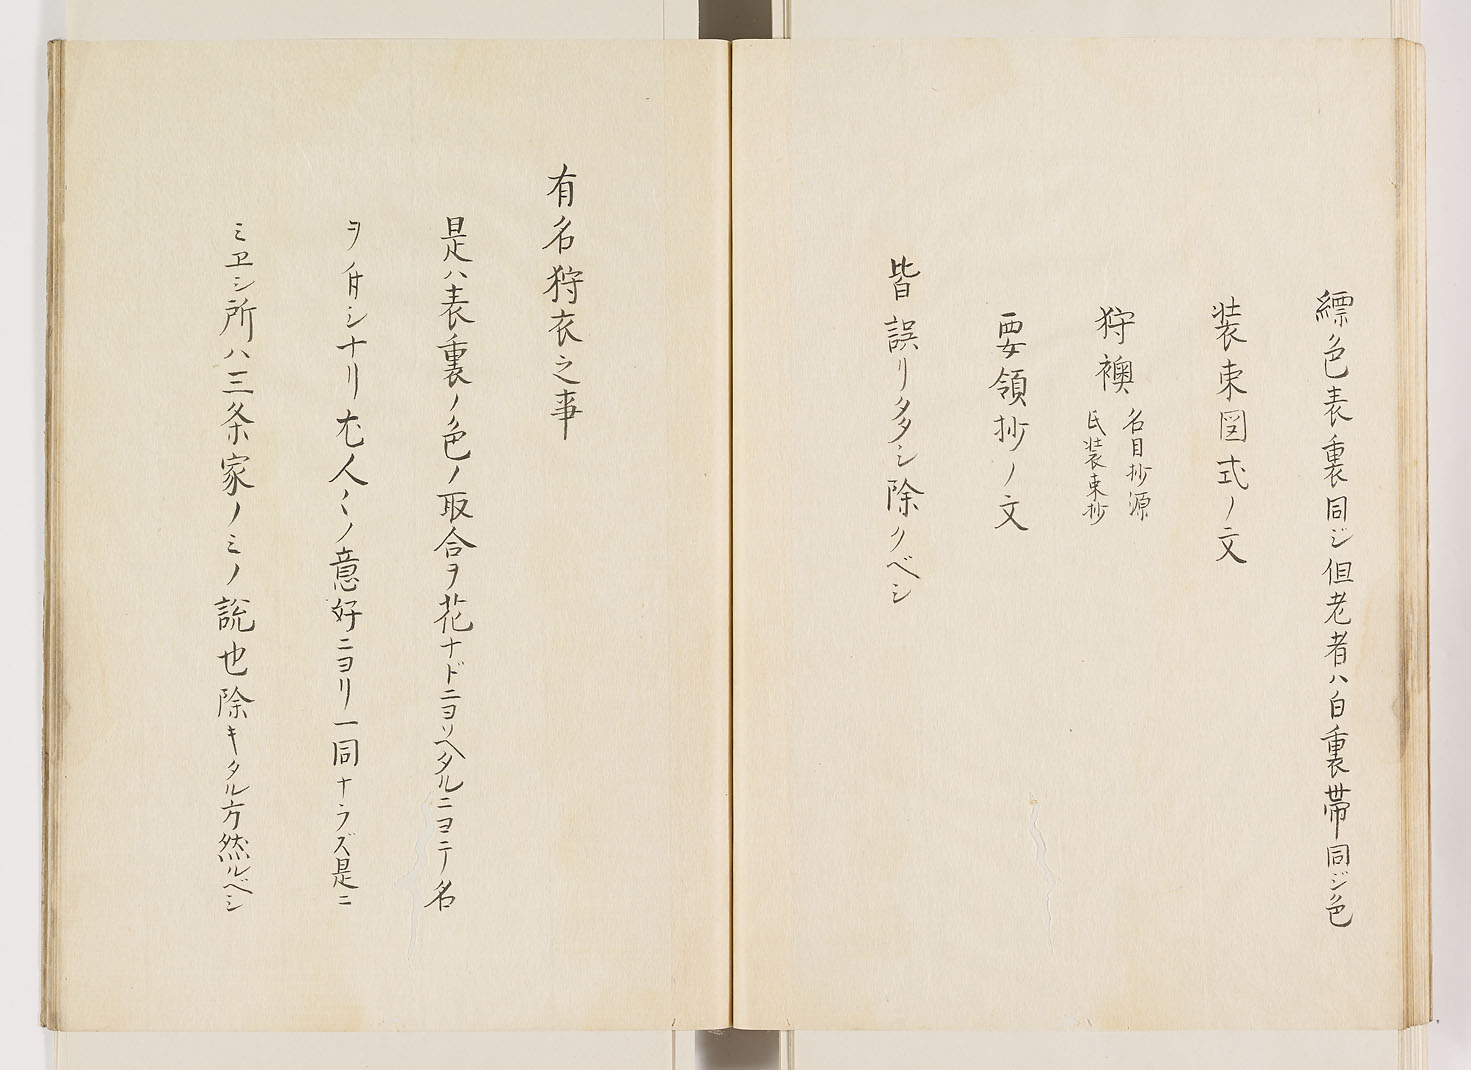 縹色表裏同ジ但老者ハ白裏帯同ジ色
装束図式ノ文
狩襖
名目抄源
氏装束抄
要領抄ノ文
皆誤リ多シ除クベシ
有名狩衣之事
是ハ表裏ノ色ノ取合ヲ花ナドニヨソヘタルニヨテ名
ヲ付シナリ尤人〻ノ意好ニヨリ一同ナラズ是ニ
ミヱシ所ハ三条家ノミノ説也除キタル方然ルベシ